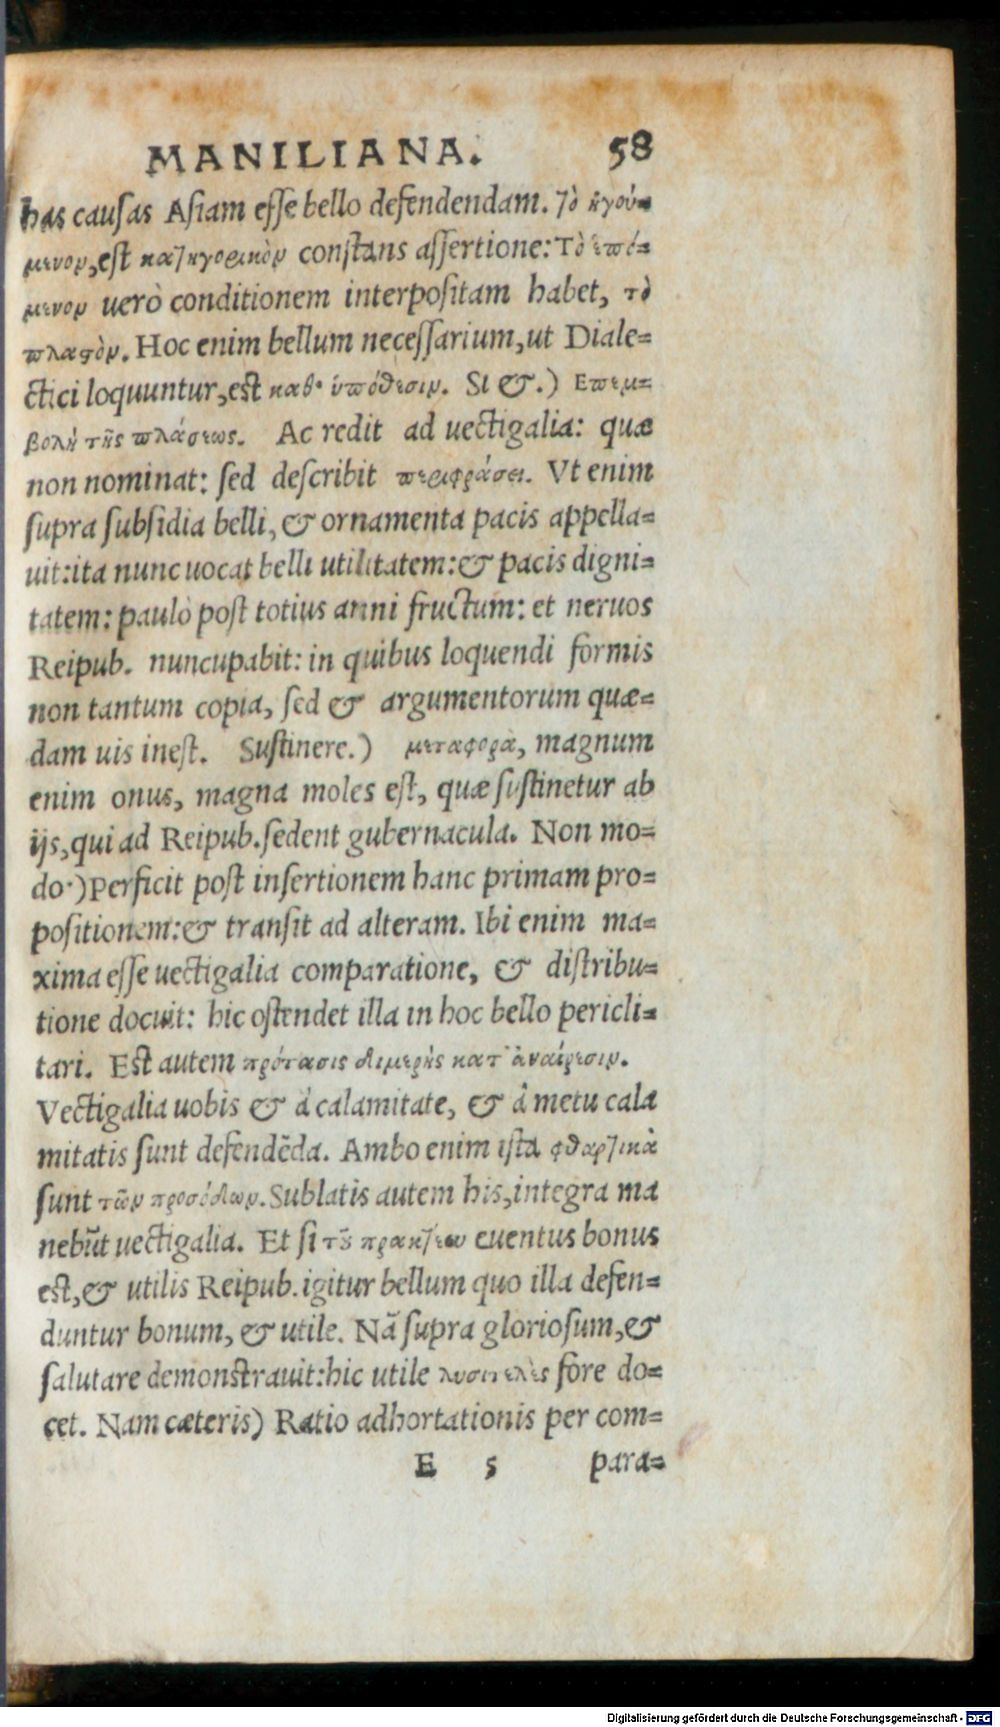 MANILIANA. 58
has causas Asiam esse bello defendendam. Τὸ ἡγού=
μενον, est κατηγορικὸν constans assertione: Τὸ ἑπό=
μενον uerò conditionem interpositam habet, τὸ
πλαστὸν. Hoc enim bellum necessarium, ut Diale=
ctici loquuntur, est καθ' ὑπόθεσιν. Si &.) Επεμ=
βολὴ τῆς πλάσεως. Ac redit ad uectigalia: quæ
non nominat: sed describit περιφράσει. Vt enim
supra subsidia belli, & ornamenta pacis appella=
uit: ita nunc uocat belli utilitatem: & pacis digni=
tatem: paulò post totius anni fructum: et neruos
Reipub. nuncupabit: in quibus loquendi formis
non tantum copia, sed & argumentorum quæ=
dam uis inest. Sustinere.) μεταφορὰ, magnum
enim onus, magna moles est, quæ sustinetur ab
ijs, qui ad Reipub. sedent gubernacula. Non mo=
do.) Perficit post insertionem hanc primam pro=
positionem: & transit ad alteram. Ibi enim ma=
xima esse uectigalia comparatione, & distribu=
tione docuit: hic ostendet illa in hoc bello pericli=
tari. Est autem πρότασις διμερὴς κατ' ἀναίρεσιν.
Vectigalia uobis & à calamitate, & à metu cala
mitatis sunt defendẽda. Ambo enim ista φθαρτικὰ
sunt τῶν προσόδων. Sublatis autem his, integra ma
nebũt uectigalia. Et si τȣ͂ πρακτέου euentus bonus
est, & utilis Reipub. igitur bellum quo illa defen=
duntur bonum, & utile. Nã supra gloriosum, &
salutare demonstrauit: hic utile λυσιτελὲς fore do=
cet. Nam cæteris) Ratio adhortationis per com=
E 5 para=
Digitalisierung gefördert durch die Deutsche Forschungsgemeinschaft - DFG